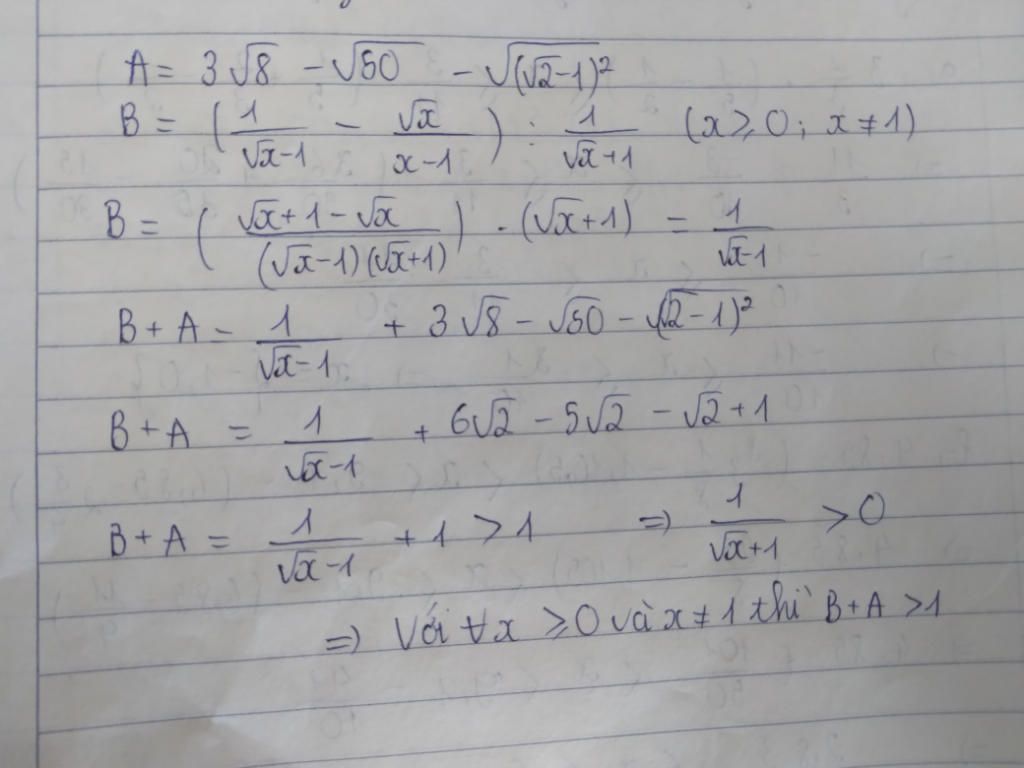 A = 3√8 - √50 - √(√2-1)²
B = (1/(√x-1) - √x/(x-1)) : 1/(√x+1) (x ⩾ 0; x ≠ 1)
B = ((√x+1-√x)/((√x-1)(√x+1))) . (√x+1) = 1/(√x-1)
B + A = 1/(√x-1) + 3√8 - √50 - √(√2-1)²
B + A = 1/(√x-1) + 6√2 - 5√2 - √2 + 1
B + A = 1/(√x-1) + 1 > 1 => 1/(√x+1) > 0
=> Với ∀x ⩾ 0 và x ≠ 1 thì B + A > 1